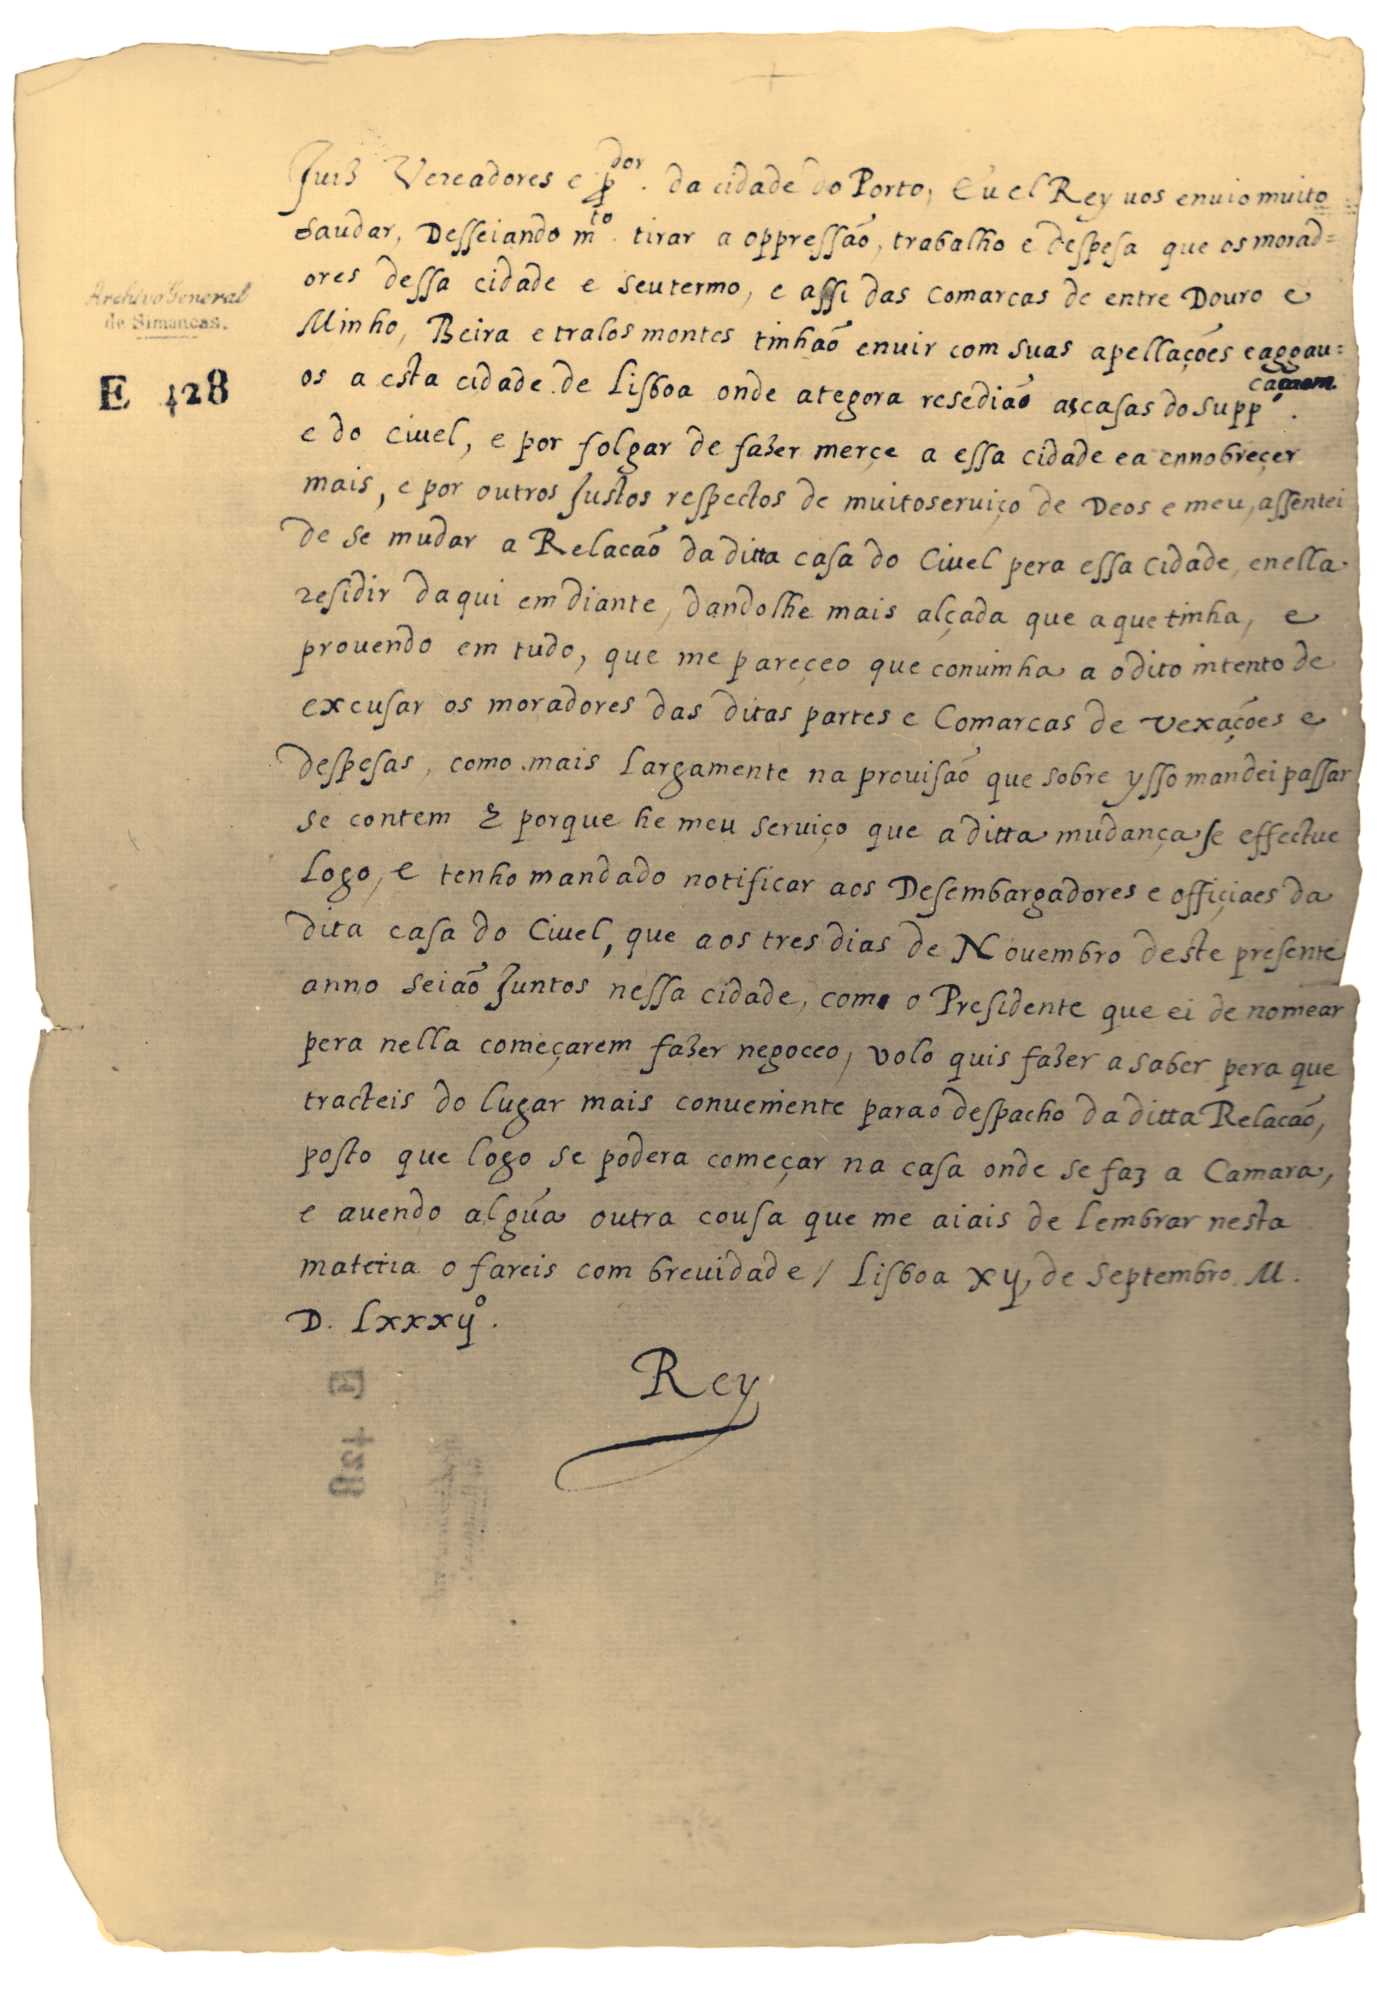 Juiz Vereadores e p.dor da cidade do Porto, Eu el Rey uos enuio muito
saudar, Desseiando m.to tirar a oppressão, trabalho e despesa que os morad=
ores dessa cidade e seu termo, e assi das comarcas de entre Douro e
Archivo General
de Simancas.
Minho, Beira e tralos montes tinhão en uir com suas apellações e aggau=
E 428
os a esta cidade de Lisboa onde ategora resedião as casas do supp.caçam
e do ciuel, e por folgar de fazer merçe a essa cidade e a ennobreçer
mais, e por outros justos respectos de muito seruiço de Deos e meu, assentei
de se mudar a Relacão da ditta casa do Ciuel pera essa cidade, e nella
residir da qui em diante, dandolhe mais alçada que a que tinha, e
prouendo em tudo, que me pareçeo que conuinha a o dito intento de
excusar os moradores das ditas partes e Comarcas de vexações e
despesas, como mais largamente na prouisão que sobre ysso mandei passar
se contem & porque he meu seruiço que a ditta mudança se effectue
logo, e tenho mandado notificar aos Desembargadores e offiçiaes da
dita casa do Ciuel, que aos tres dias de Nouembro deste presente
anno seião juntos nessa cidade, como o Presidente que ei de nomear
pera nella começarem fazer negoceo, volo quis fazer a saber pera que
tracteis do lugar mais conueniente para o despacho da ditta Relacão,
posto que logo se podera começar na casa onde se faz a Camara,
e auendo algũa outra cousa que me aiais de lembrar nesta
materia o fareis com breuidade / Lisboa xij, de Septembro M.
D. Lxxxijº.
Rey
E 428